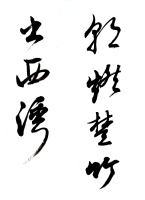 朝燃楚竹
出西湾